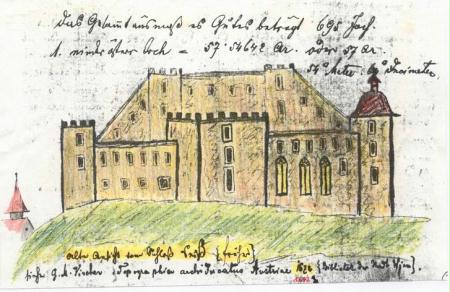 Das Gesamtausmaß es Gutes beträgt 695 Joch.
1. nieder österr Joch = 57·54642 Ar. oder 57 ar
54 Meter
Alte Ansicht von Schloß {früher}
siehe G. M. Vischer {Topographia archiducatus Austriae 1672 {Bibliotek der Stadt